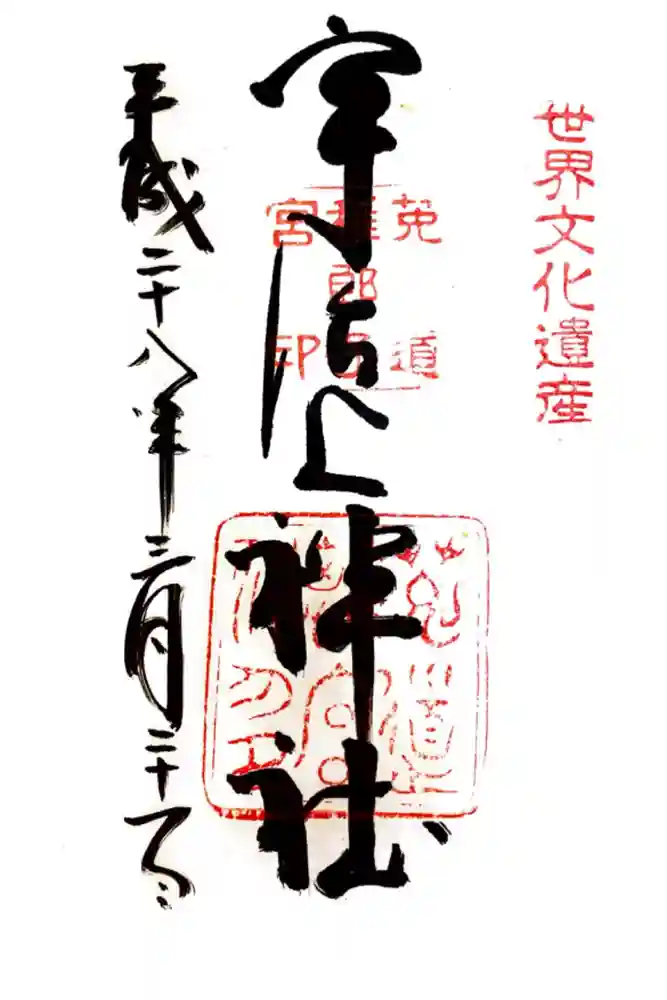 世界文化遺産
菟道稚郎子宮印
宇治上神社
平成二十八年三月二十日